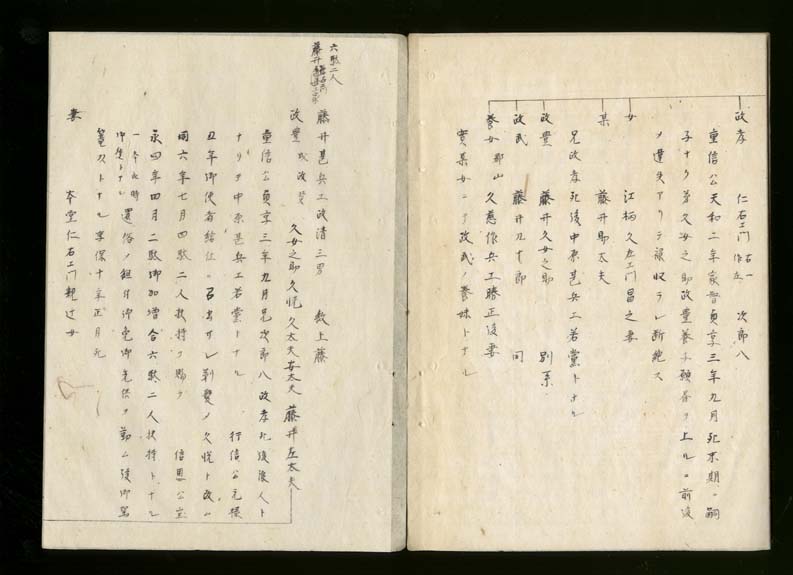 政孝 仁右エ門 右一 作丘 次郎八
重信公天和二年家督貞享三年九月死末期ニ嗣
子ナク弟久女之助政豊養子願書ヲ上ルニ前後
ノ違失アリテ禄収ラレ断絶ス
女 江柄久左エ門昌之妻
某 藤井助太夫
兄政孝死後中原甚兵エ若党トナル
政豊 藤井久女之助 別系
政武 藤井九十郎 同
養女 郡山久慈作兵エ勝正後妻
実某女ニテ政武ノ養妹トナル
六駄二人
藤井甚兵エ政清三男 数上藤
政豊 政 久女之助 久悦 久太夫 安太夫 藤井左太夫
重信公貞享三年九月兄次郎八政孝死後浪人ト
ナリテ中原甚兵エ若党トナル 行信公元禄
丑年御使者給仕ニ召出サレ剃髪ノ久悦ト改ム
同六年七月四駄二人扶持ヲ賜フ 信恩公宝
永四年四月二駄御加増合六駄二人扶持トナル
一本此時還俗ノ 御光供ヲ勤ム後御駕
御徒トナル
篭刀トナル享保十年正月死
妻 本堂仁右エ門親辻女